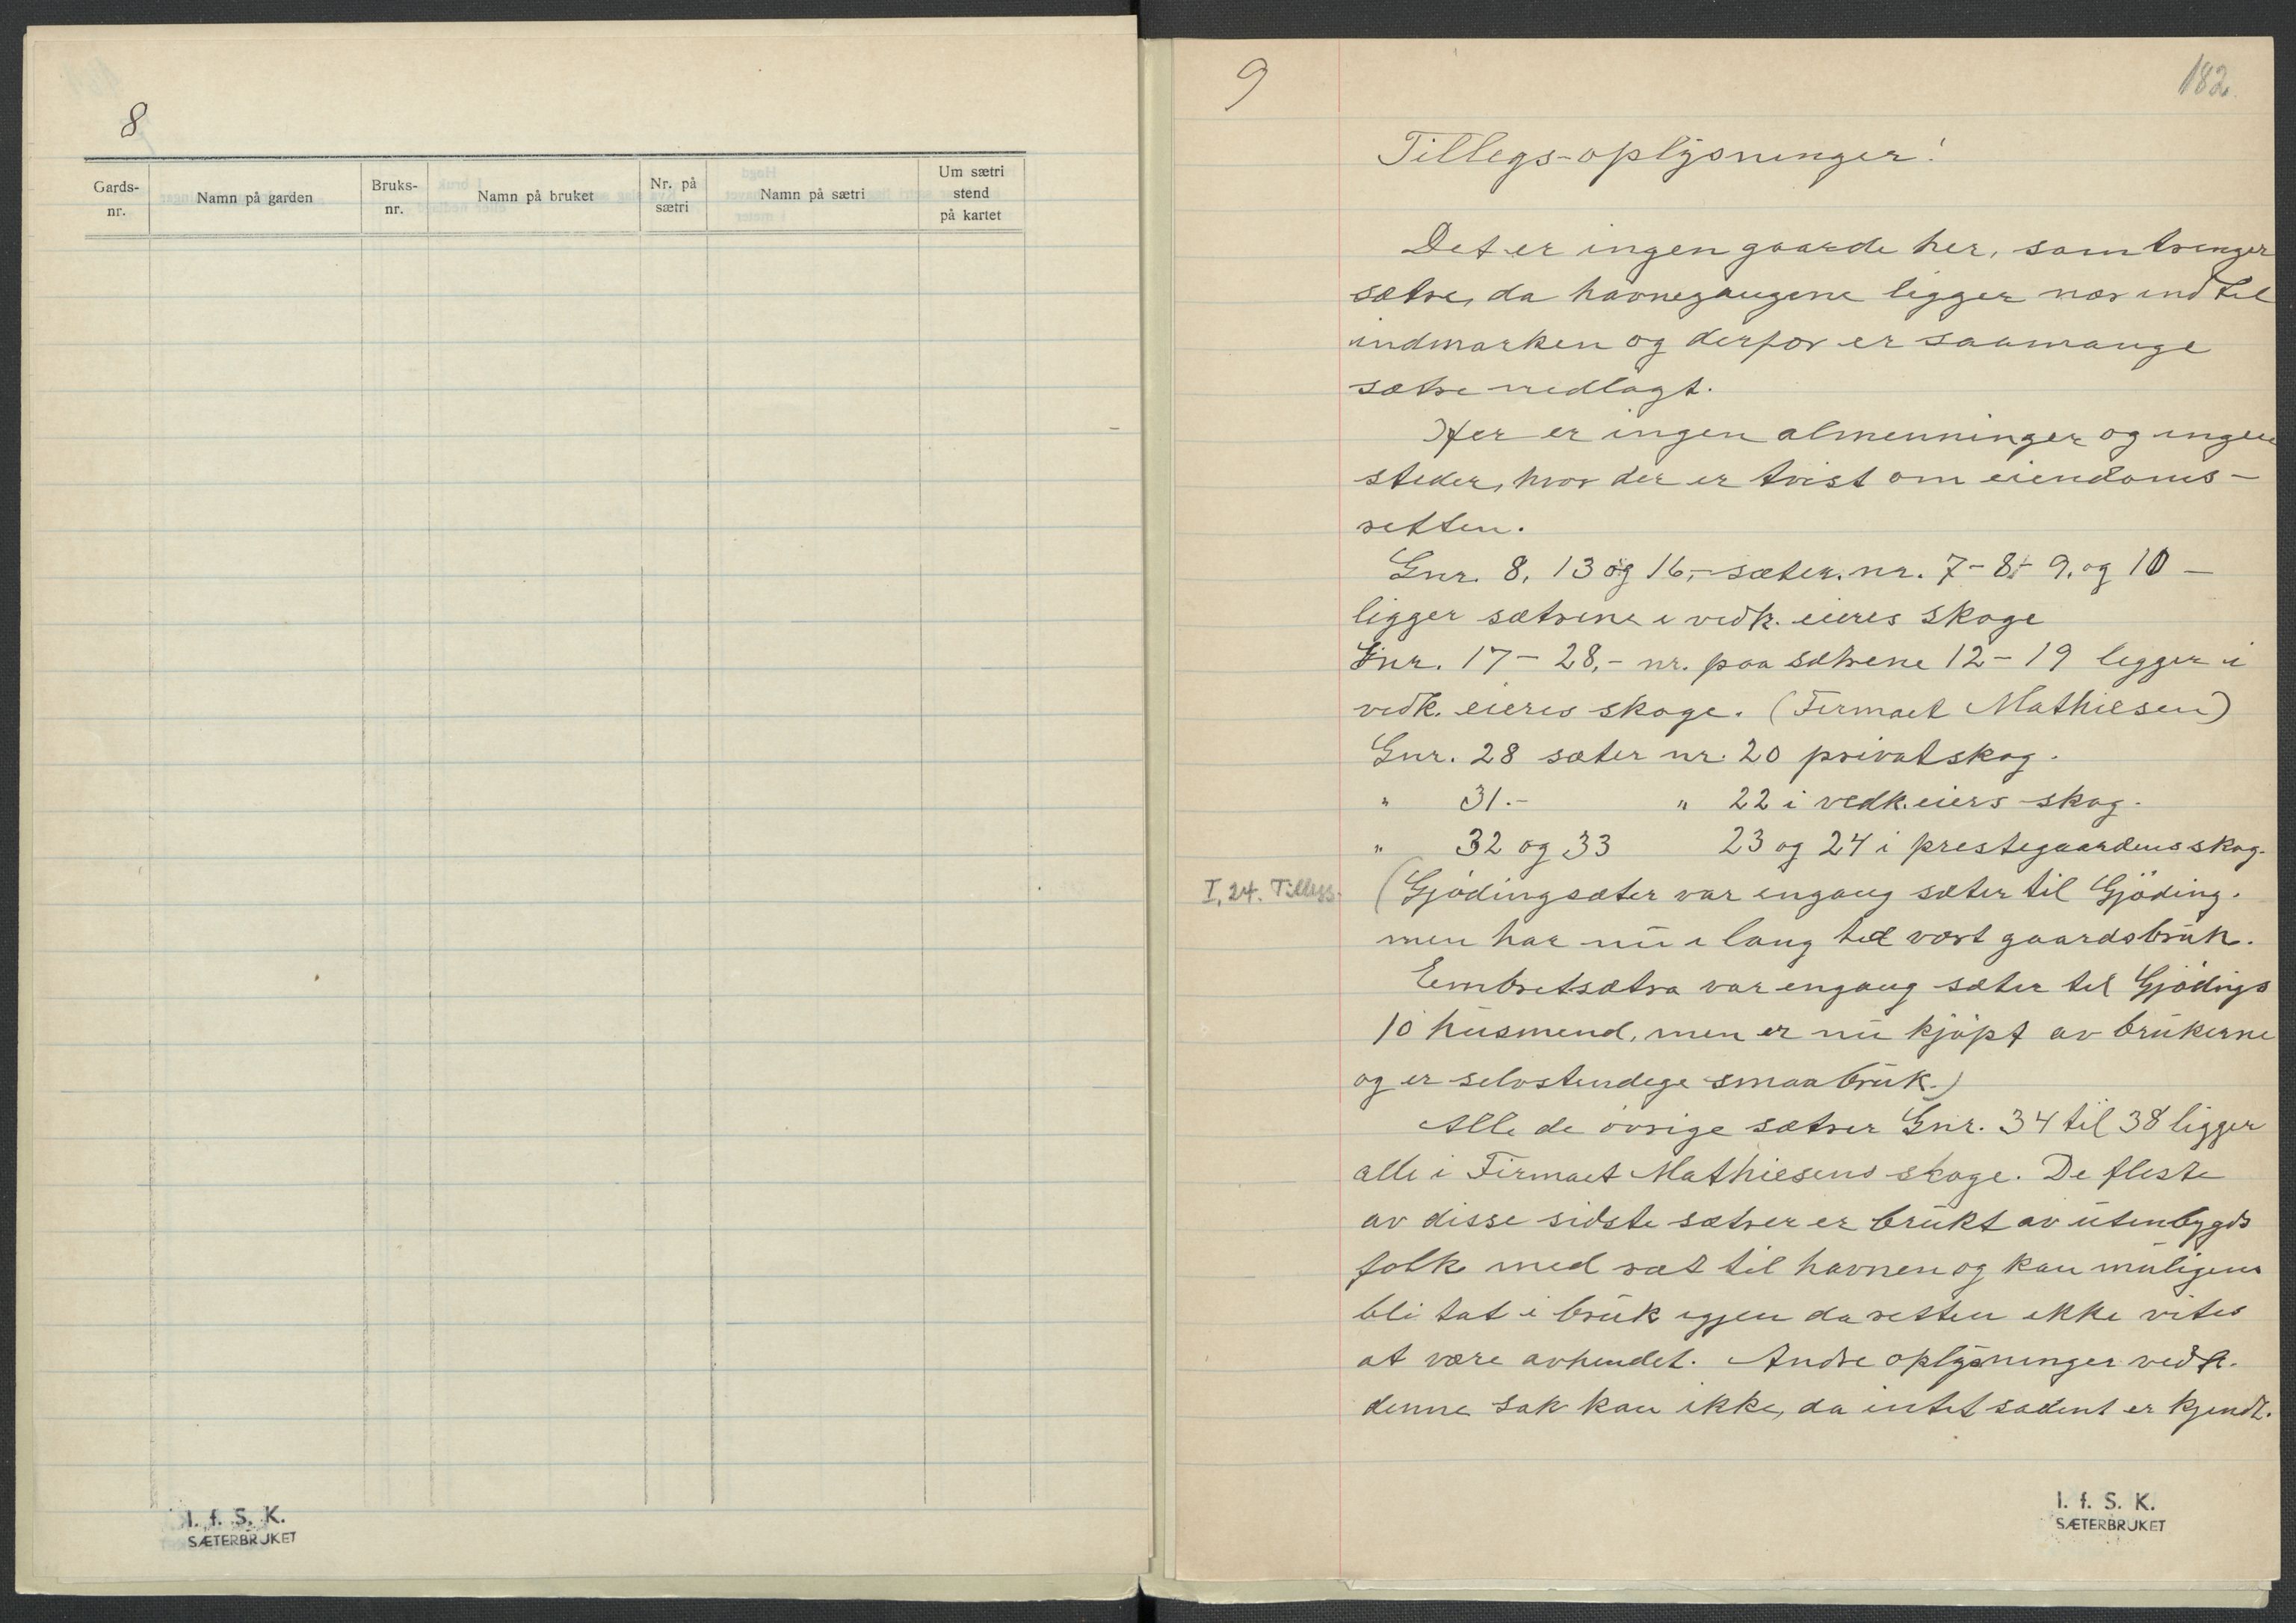 8
Gards-
nr.
Namn på garden
Bruks-
nr.
Namn på bruket
Nr. på
sætri
Namn på sætri
Um sætri
stend
på kartet
I. f. S. K.
SÆTERBRUKET
9
182
Tillegs-oplysninger!
Det er ingen gaarde her, som trenger
sætre, da havnegangene ligger nær ind til
indmarken og derfor er saamange
sætre nedlagt.
Her er ingen almenninger og ingen
steder, hvor der er tvist om eiendoms-
retten.
Gnr. 8, 13 og 16,- sæter. nr. 7- 8- 9, og 10 -
ligger sætrene i vedk. eieres skoge
Gnr. 17- 28,- nr. paa sætrene 12 - 19 ligger i
vedk. eieres skoge. (Firmaet Mathiesen)
Gnr. 28 sæter nr. 20 privatskog.
" 31.- " 22 i vedk. eiers skog.
" 32 og 33 23 og 24 i prestegaardens skog.
I, 24. Tillegg.
(Gjödingsæter var engang sæter til Gjöding.
men har nu i lang tid vært gaardsbruk.
Eembretsætra var engang sæter til Gjödings
10 husmend, men er nu kjöpt av brukerne
og er selvstendige smaabruk.)
Alle de övrige sætrer Gnr. 34 til 38 ligger
alle i Firmaet Mathiesens skoge. De fleste
av disse sidste sætrer er brukt av utenbygds
folk med ret til havnen og kan muligens
bli tat i bruk igjen da retten ikke vites
at være avhendet. Andre oplysninger vedk.
denne sak kan ikke, da intet sadant er kjendt.
I. f. S. K.
SÆTERBRUKET